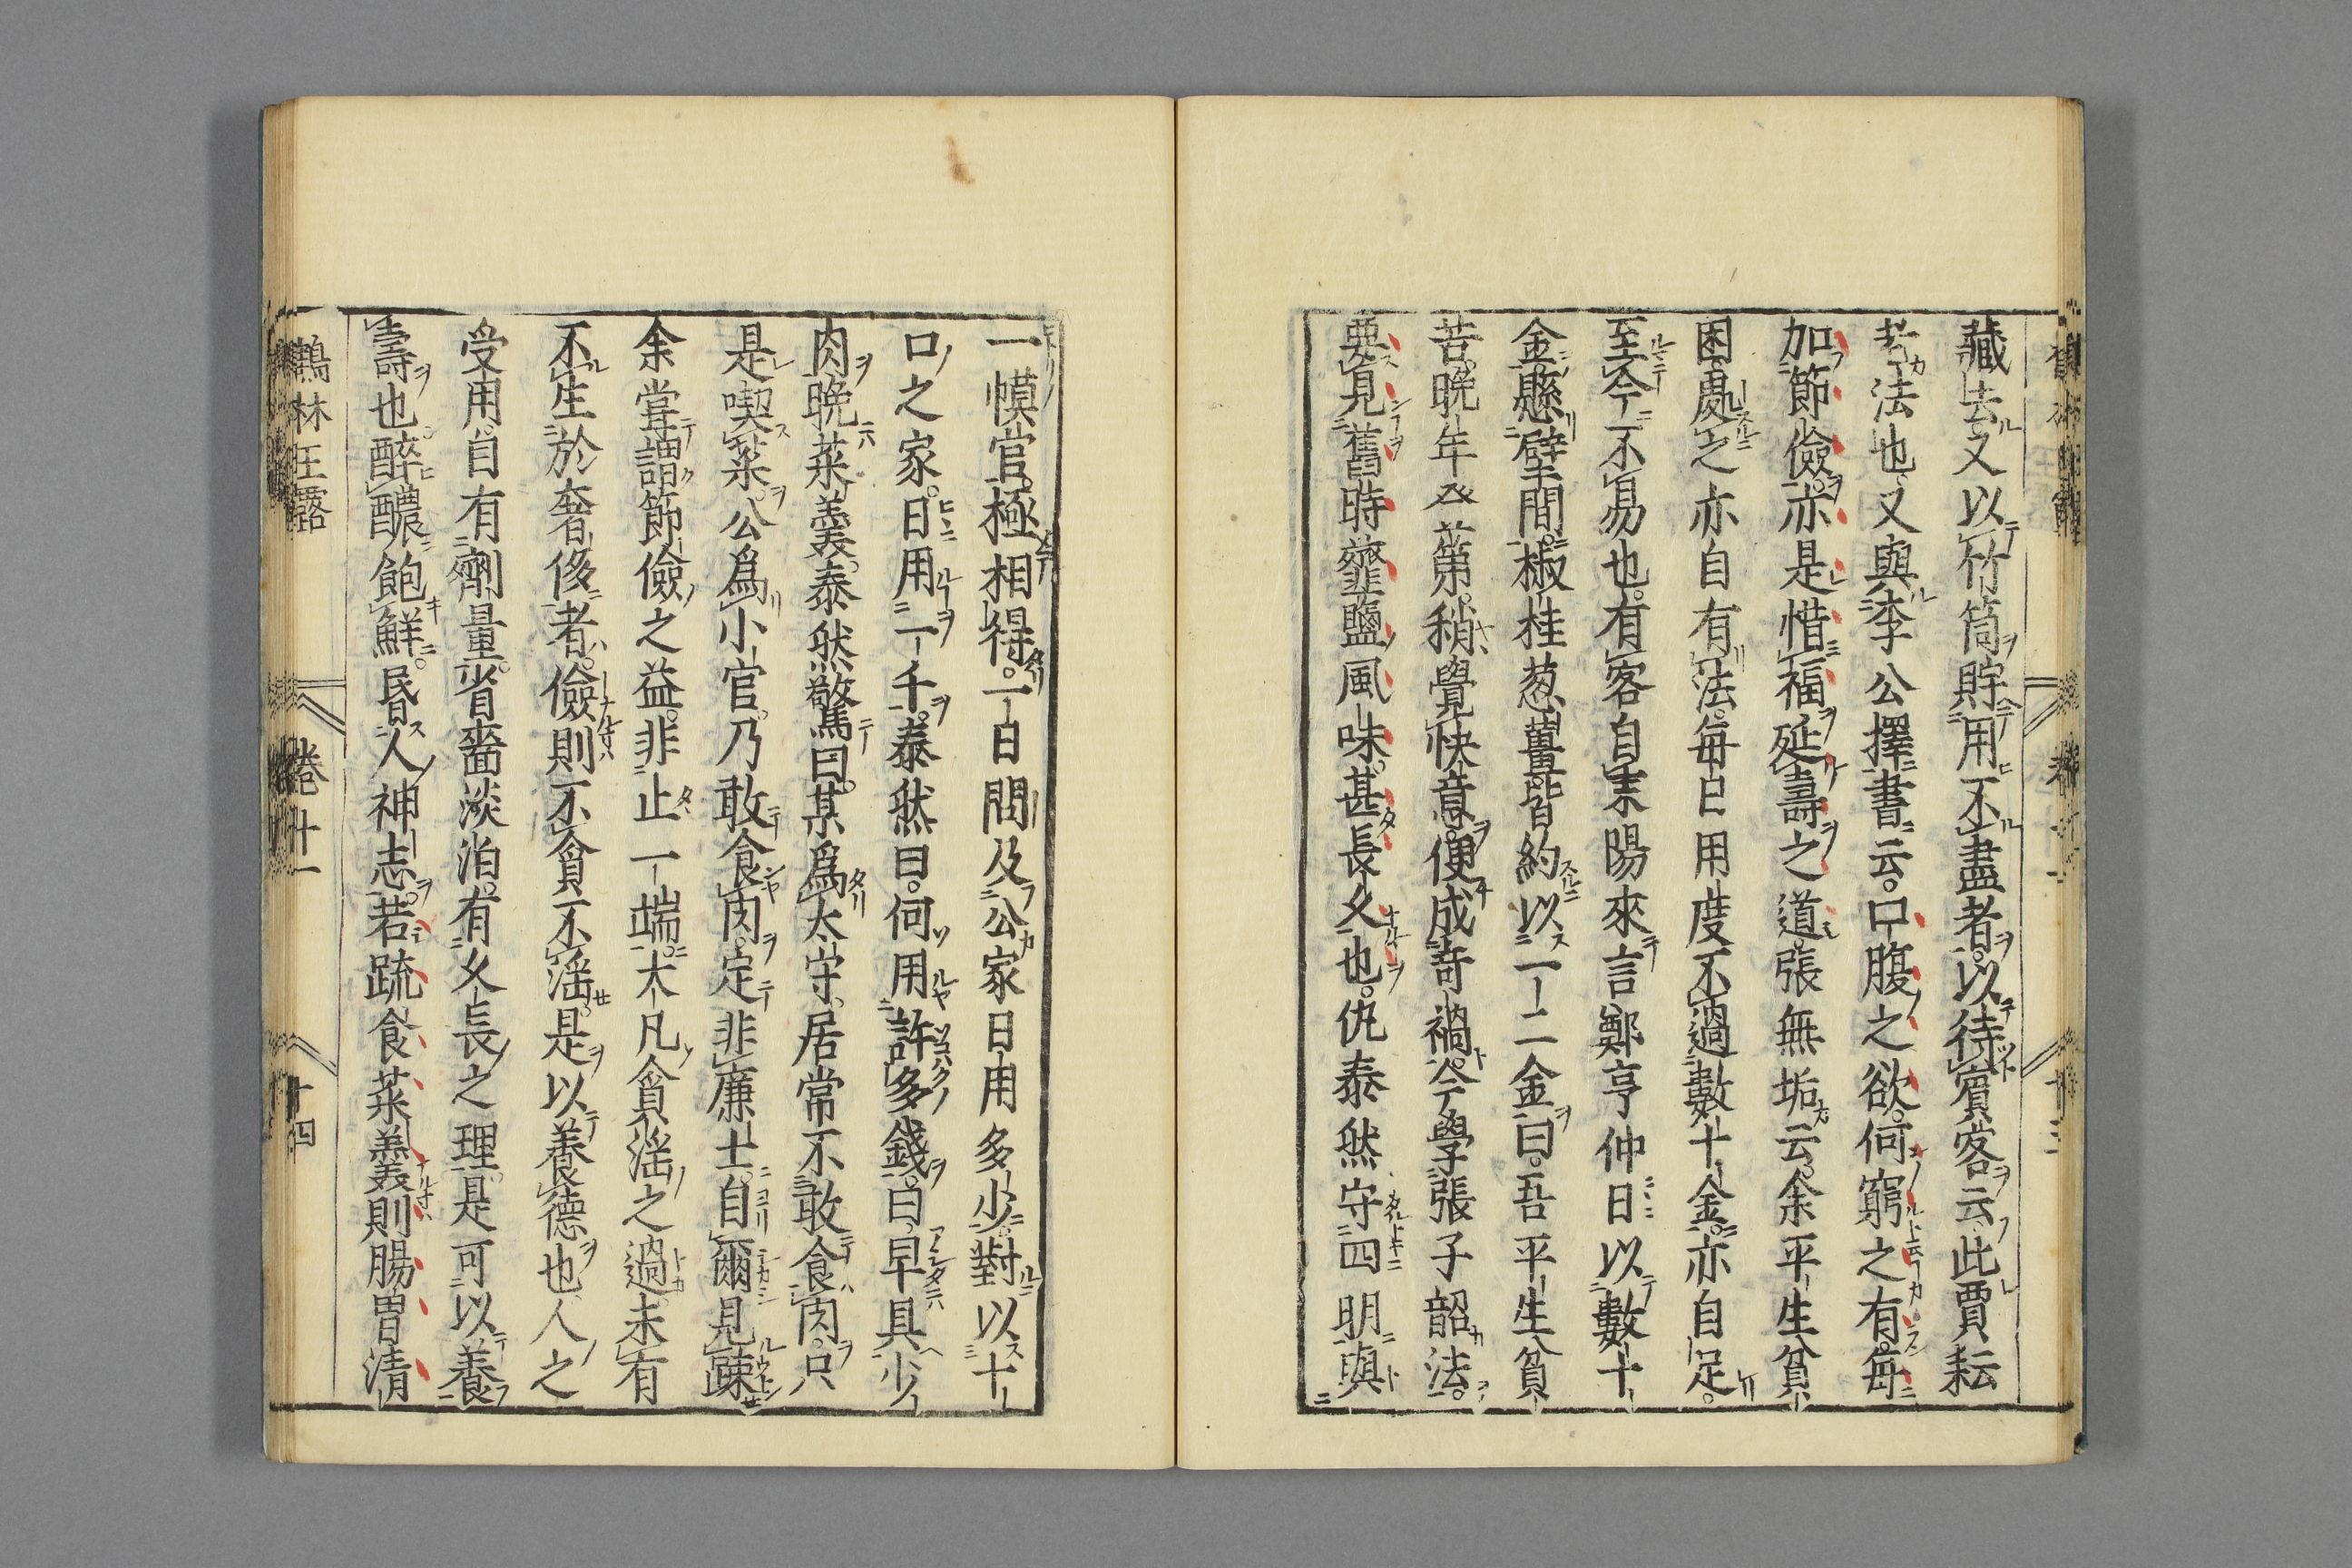 藏去又以竹筒貯用不盡者。以待賓客云、此賈耘
老法也又與李公擇書云。口腹之欲。何窮之有。每
加節儉。亦是惜福延壽之道。張無垢云。余平生貧
困。處之亦自有法。每日用度不過數十金。亦自足。
至今不易也。有客自耒陽來言鄭亨仲日以數十
金懸壁間。椒桂葱薑皆約以一二金曰。吾平生貧
苦。晩年登第。稍覺快意。便成奇禍。今學張子韶法。
要見舊時虀鹽風味。甚長久也。仇泰然守四明與
一幙官。極相得。一日問及公家日用多少。對以十
口之家。日用一千。泰然曰。何用許多錢。曰、早具少
肉晩菜羹。泰然驚曰。某爲太守。居常不敢食肉。只
是喫菜。公爲小官。乃敢食肉。定非廉士。自爾見踈
余嘗謂節儉之益。非止一端。大凡貪淫之過。未有
不生於奢侈者。儉則不貪不淫。是以養德也、人之
受用。自有劑量。省嗇淡泊。有久長之理。是可以養
壽也。醉醲飽鮮。昏人神志。若疏食菜羹則腸胃清
鶴林玉露　卷十一　十四